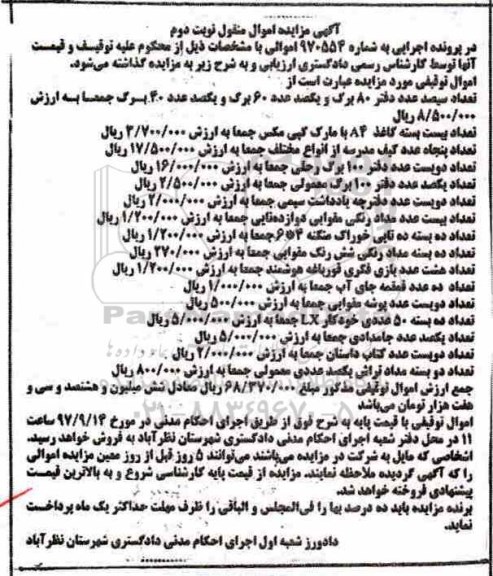 آگهی مزایده اموال منقول نوبت دوم
در پرونده اجرایی به شماره ۹۷۰۵۵۴ اموالی با مشخصات ذیل از محکوم علیه توقیف و قیمت
آنها توسط کارشناس رسمی دادگستری ارزیابی و به شرح زیر به مزایده گذاشته می‌شود.
اموال توقیفی مورد مزایده عبارت است از
تعداد سیصد عدد دفتر ۸۰ برگ و یکصد عدد ۶۰ برگ و یکصد عدد ۴۰ برگ جمعا به ارزش
۸/۵۰۰/۰۰۰ ریال
تعداد بیست بسته کاغذ A۴ با مارک کپی مکس جمعا به ارزش ۲/۷۰۰/۰۰۰ ریال
تعداد پنجاه عدد کیف مدرسه از انواع مختلف جمعا به ارزش ۱۷/۵۰۰/۰۰۰ ریال
تعداد دویست عدد دفتر ۱۰۰ برگ رحلی جمعا به ارزش ۱۶/۰۰۰/۰۰۰ ریال
تعداد یکصد عدد دفتر ۱۰۰ برگ معمولی جمعا به ارزش ۲/۵۰۰/۰۰۰ ریال
تعداد دویست عدد دفترچه یادداشت سیمی جمعا به ارزش ۲/۰۰۰/۰۰۰ ریال
تعداد بیست عدد مداد رنگی مقوایی دوازده‌تایی جمعا به ارزش ۱/۲۰۰/۰۰۰ ریال
تعداد ده بسته ده تایی خوراک منگنه ۶*۴ جمعا به ارزش ۱/۲۰۰/۰۰۰ ریال
تعداد ده بسته مداد رنگی شش رنگ مقوایی جمعا به ارزش ۲۷۰/۰۰۰ ریال
تعداد هشت عدد بازی فکری قورباغه هوشمند جمعا به ارزش ۱/۲۰۰/۰۰۰ ریال
تعداد ده عدد قمقمه جای آب جمعا به ارزش ۱/۰۰۰/۰۰۰ ریال
تعداد دویست عدد پوشه مقوایی جمعا به ارزش ۵۰۰/۰۰۰ ریال
تعداد ده بسته ۵۰ عددی خودکار LX جمعا به ارزش ۵/۰۰۰/۰۰۰ ریال
تعداد یکصد عدد جامدادی جمعا به ارزش ۵/۰۰۰/۰۰۰ ریال
تعداد دویست عدد کتاب داستان جمعا به ارزش ۲/۰۰۰/۰۰۰ ریال
تعداد دو بسته مداد تراش یکصد عددی معمولی جمعا به ارزش ۸۰۰/۰۰۰ ریال
جمع ارزش اموال توقیفی مذکور مبلغ ۶۸/۳۷۰/۰۰۰ ریال معادل شش میلیون و هشتصد و سی و
هفت هزار تومان می‌باشد
اموال توقیفی با قیمت پایه به شرح فوق از طریق اجرای احکام مدنی در مورخ ۹۷/۹/۱۴ ساعت
۱۱ در محل دفتر شعبه اجرای احکام مدنی دادگستری شهرستان نظرآباد به فروش خواهد رسید.
اشخاصی که مایل به شرکت در مزایده می‌باشند می‌توانند ۵ روز قبل از روز معین مزایده اموالی
را که آگهی گردیده ملاحظه نمایند. مزایده از قیمت پایه کارشناسی شروع و به بالاترین قیمت
پیشنهادی فروخته خواهد شد.
برنده مزایده باید ده درصد بها را فی‌المجلس و الباقی را ظرف مهلت حداکثر یک ماه پرداخت
نماید.
دادورز شعبه اول اجرای احکام مدنی دادگستری شهرستان نظرآباد
۰۲۱-۸۸۳۴۹۶۷۰-۵